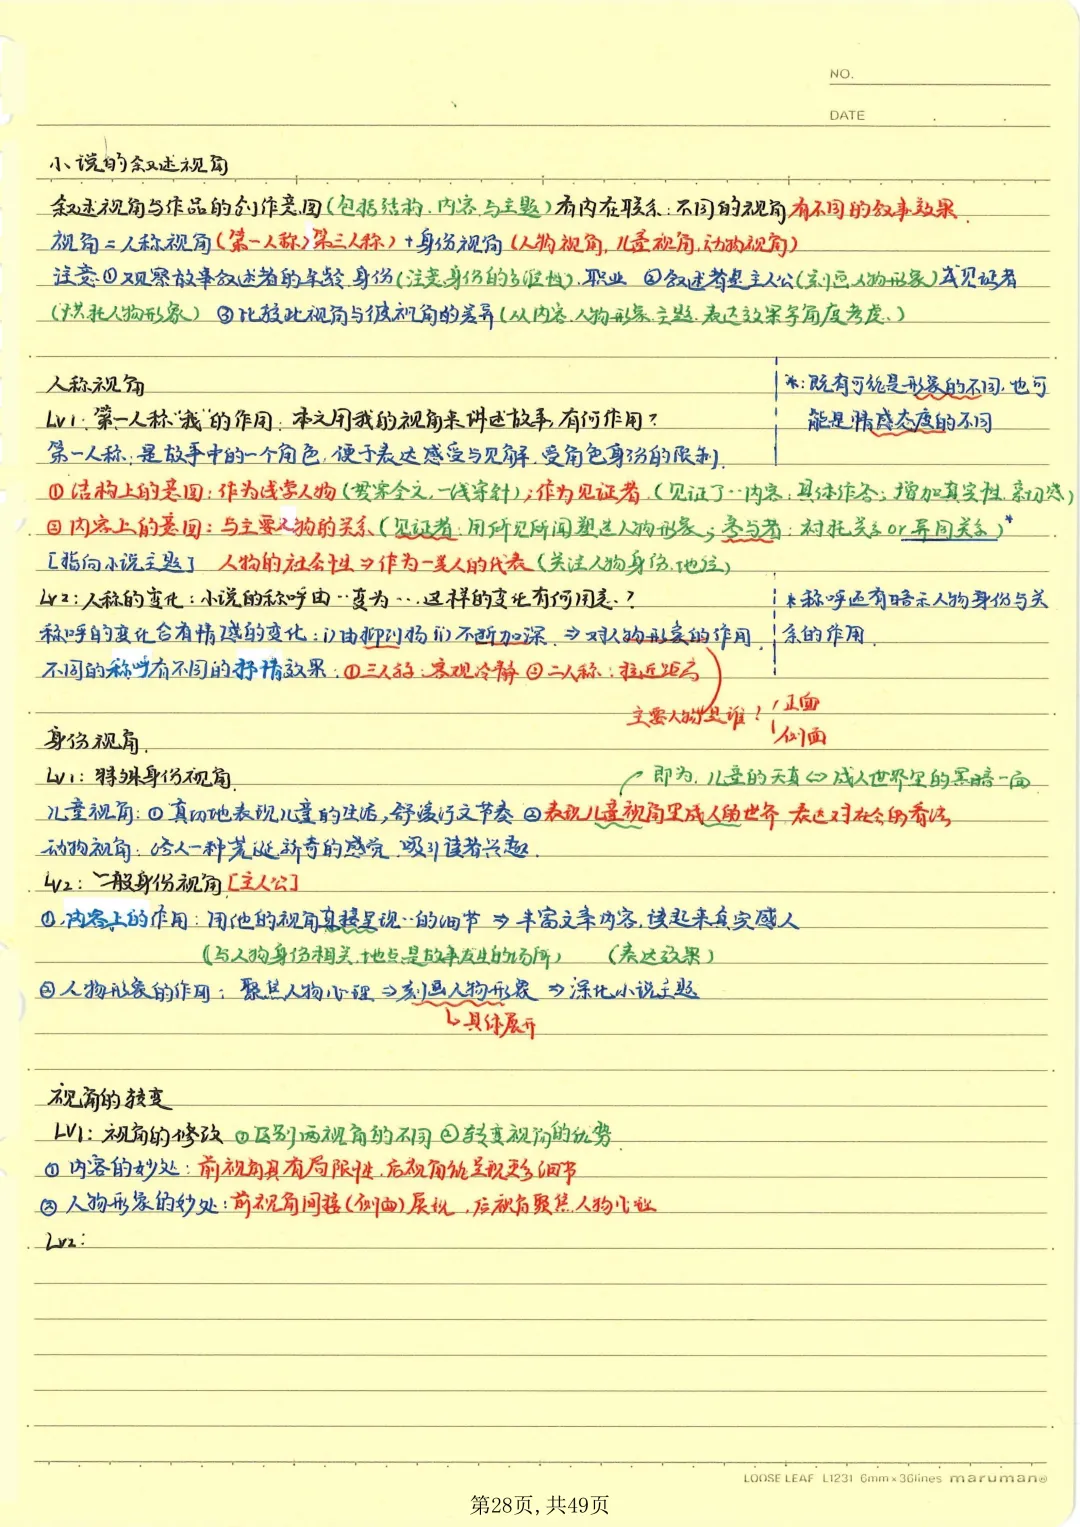 NO.
DATE
小说的叙述视角
叙述视角与作品的创作意图(包括结构、内容与主题)有内在联系:不同的视角有不同的叙事效果.
视角=人称视角(第一人称,第三人称)+身份视角(人物视角,儿童视角,动物视角)
注意①观察故事叙述者的年龄、身份(注意身份的多准性)、职业 ②叙述者是主人公(刻画人物形象)或见证者
(烘托人物形象) ③比较此视角与彼视角的差异(从内容、人物形象、主题、表达效果等角度考虑.)
人称视角
*:既有可能是形象的不同,也可
Lv1:第一人称"我"的作用:本文用我的视角来讲述故事,有何作用?
能是情感态度的不同
第一人称:是故事中的一个角色,便于表达感受与见解,受角色身份的限制.
①结构上的意图:作为线索人物(贯穿全文,一线穿针);作为见证者(见证了…内容:具体作答;增加真实性、亲切感)
②内容上的意图:与主要人物的关系(见证者:用所见所闻塑造人物形象;参与者:衬托关系or异同关系)*
[指向小说主题] 人物的社会性⇒作为一类人的代表(关注人物身份、地位)
Lv2:人称的变化:小说的称呼由…变为…,这样的变化有何用意?
*称呼还有暗示人物身份与关
称呼的变化含有情感的变化:i)由抑到扬 ii)不断加深 ⇒对人物形象的作用
系的作用.
不同的称呼有不同的抒情效果:①三人称:客观冷静 ②二人称:拉近距离
主要人物是谁? 正面
侧面
身份视角.
Lv1:特殊身份视角.
即为,儿童的天真⇔成人世界里的黑暗一面
儿童视角:①真切地表现儿童的生活,舒缓行文节奏 ②表现儿童视角里成人的世界,表达对社会的看法
动物视角:给人一种荒诞、新奇的感觉,吸引读者兴趣.
Lv2:一般身份视角[主人公]
①内容上的作用:用他的视角直接呈现…的细节⇒丰富文章内容,读起来真实感人
(与人物身份相关、地点是故事发生的场所) (表达效果)
②人物形象的作用:聚焦人物心理⇒刻画人物形象⇒深化小说主题
↳具体展开
视角的转变
LV1:视角的修改 ①区别两视角的不同 ②转变视角的优势
①内容的妙处:前视角具有局限性,后视角能呈现更多细节
②人物形象的妙处:前视角间接(侧面)展现,后视角聚焦人物心理
Lv2:
LOOSE LEAF L1231 6mm×36lines maruman®
第28页,共49页